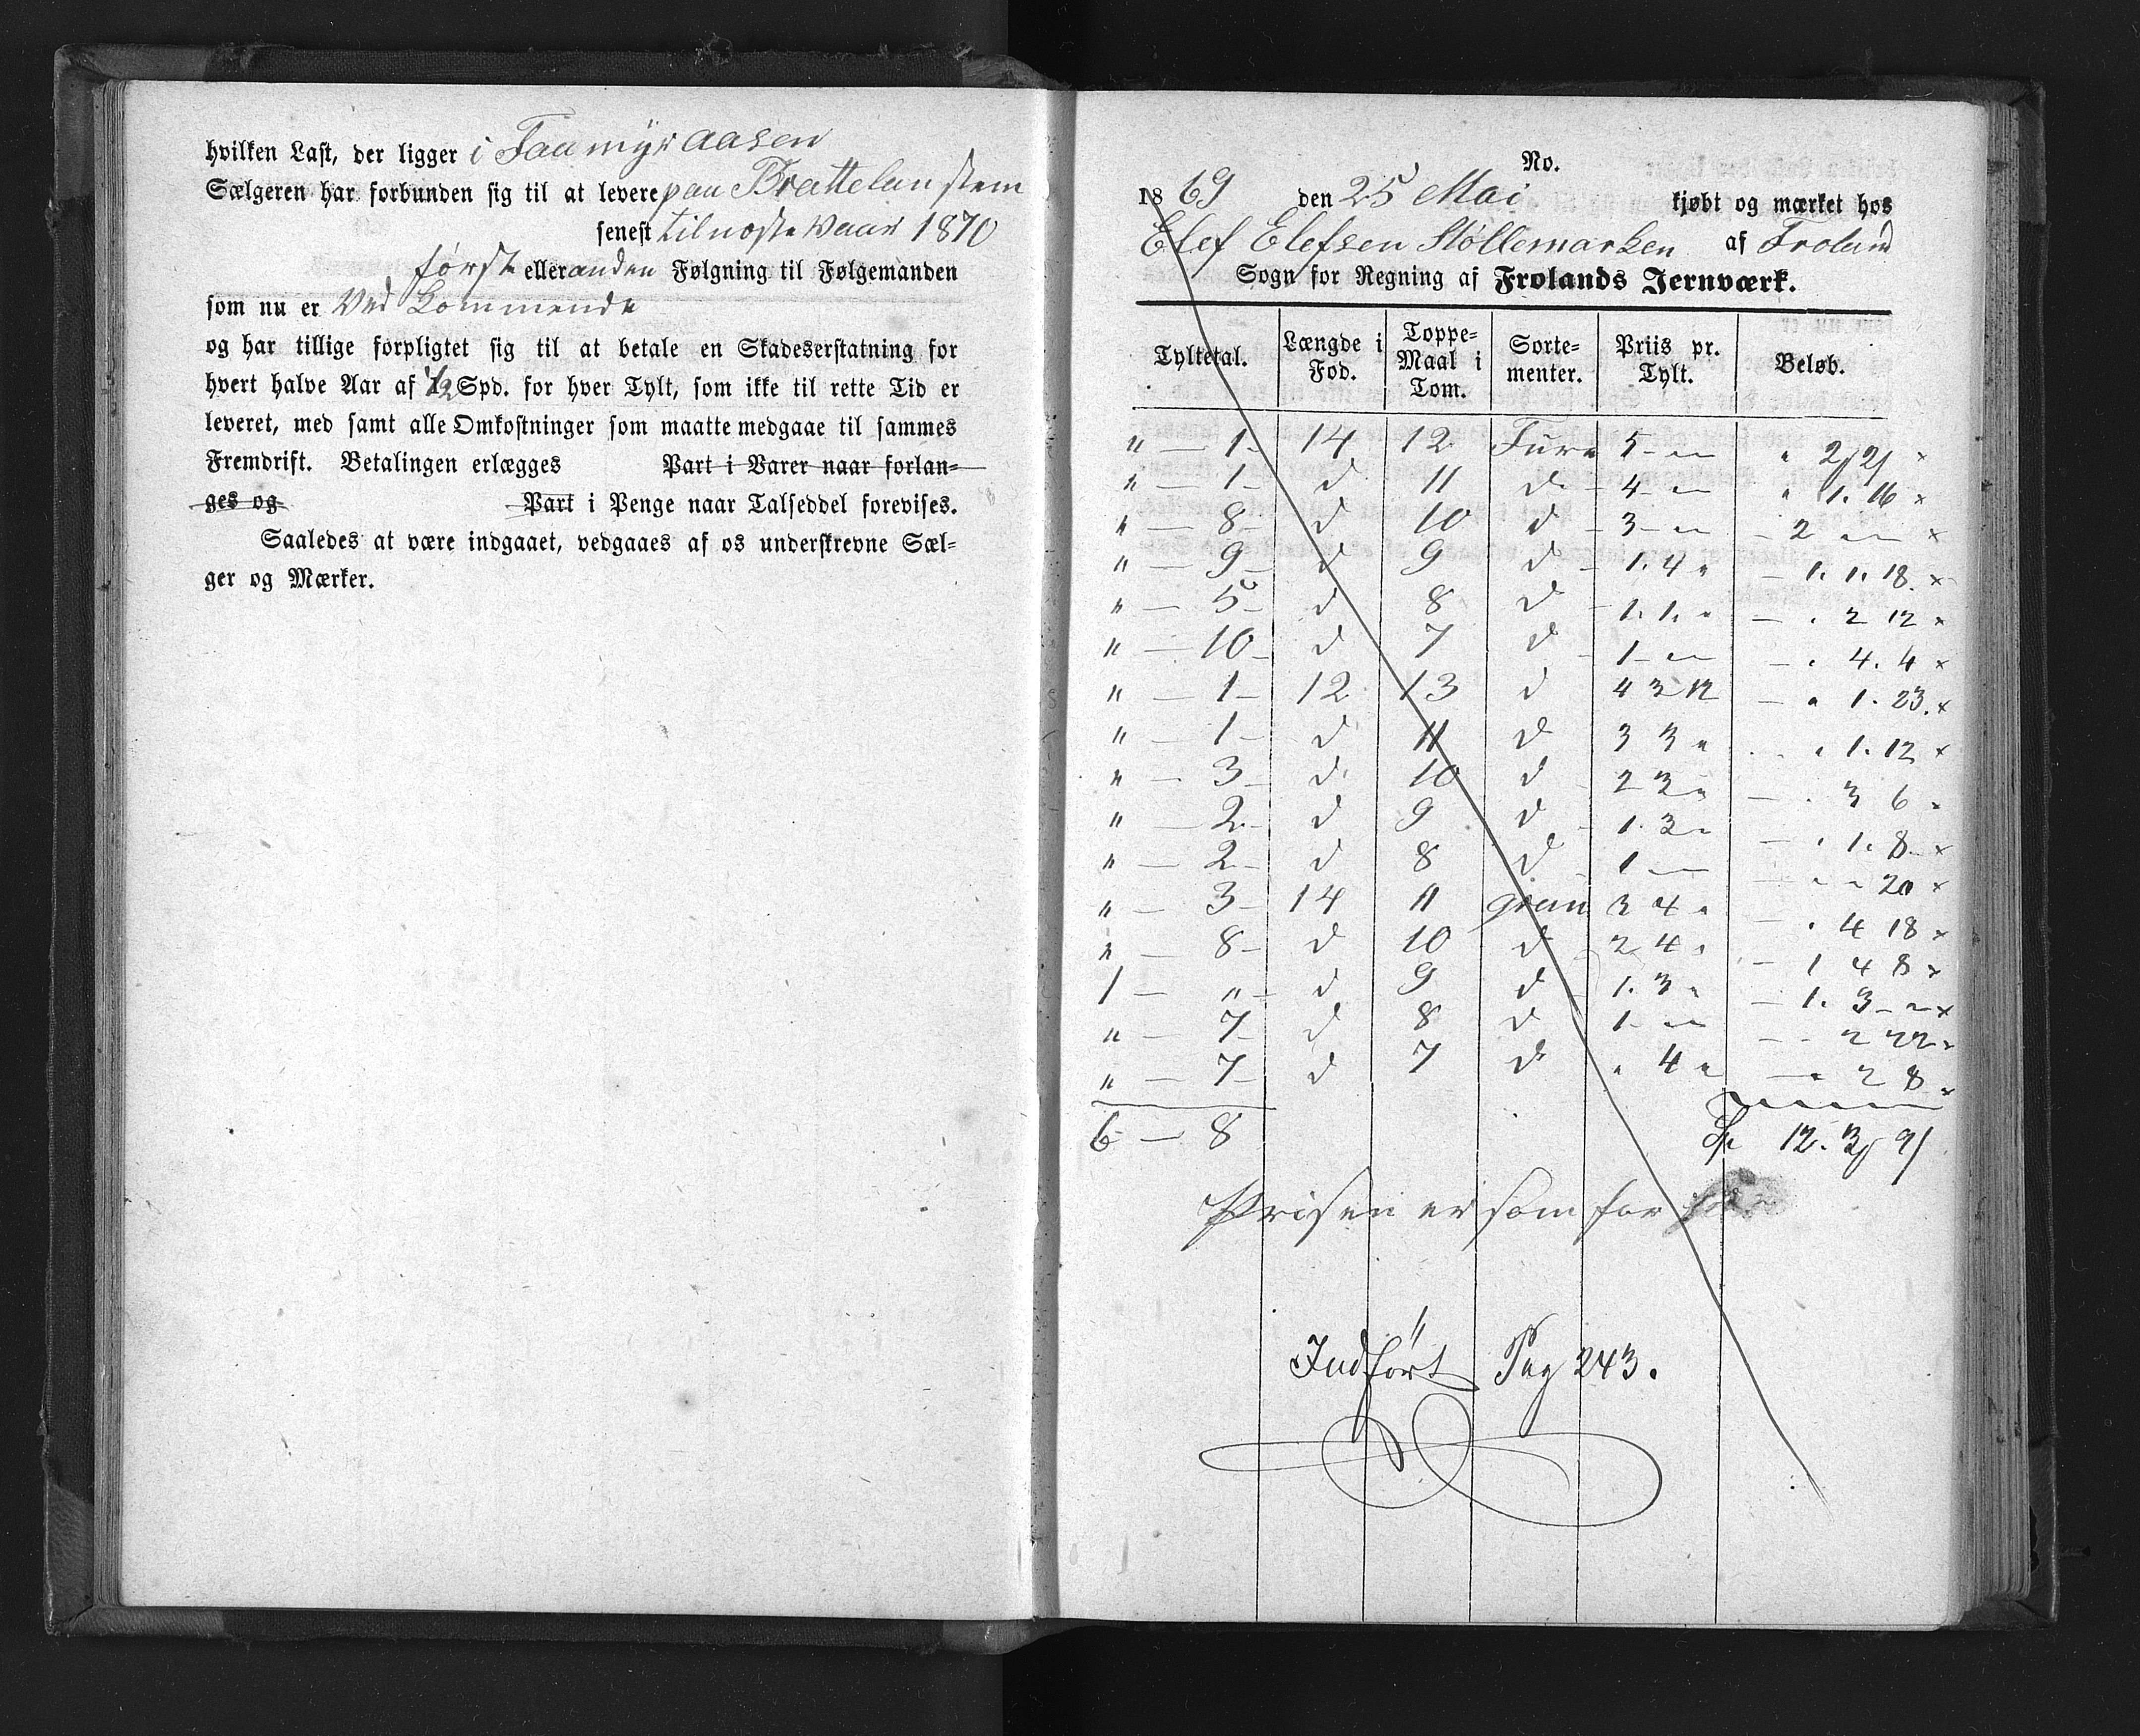 hvilken Last, der ligger i Faamyr aasen
Sælgeren har forbunden sig til at levere paa Brattelan stem
senest til nøste Vaar 1870
første eller anden Følgning til Følgemanden
som nu er Ved Kommende
og har tillige forpligtet sig til at betale en Skadeserstatning for
hvert halve Aar af 1/2 Spd. for hver Tylt, som ikke til rette Tid er
leveret, med samt alle Omkostninger som maatte medgaae til sammes
Fremdrift. Betalingen erlægges Part i Varer naar forlan-
ges og Part i Penge naar Talseddel forevises.
Saaledes at være indgaaet, vedgaaes af os underskrevne Sæl-
ger og Mærker.
No.
1869 den 25 Mai kjøbt og mærket hos
Elef Elefsen Støllemarken af Froland
Sogn for Regning af Frolands Jernværk.
Tyltetal. Længde i Fod. Toppe-Maal i Tom. Sorte-menter. Priis pr. Tylt. Beløb.
" — 1 — 14 12 Furu 5 - " " " 2 / 2 / ×
" — 1 — d 11 d - 4 - " " " 1. 16 ×
" — 8 — d 10 d - 3 - " " - 2 " " ×
" — 9 — d 9 d - 1. 4 " - 1. 1. 18. ×
" — 5 — d 8 d - 1. 1. " - " 2 12 ×
" — 10 — d 7 d - 1 - " " - " 4. 4 ×
" — 1 — 12 13 d 4 3 12 - " 1. 23. ×
" — 1 — d 11 d 3 3 " - " 1. 12 ×
" — 3 — d 10 d 2 3 " - " 3 6 ×
" — 2 — d 9 d - 1. 3 " - " 1. 8 ×
" — 2 — d 8 d 1 " " - " " 20 ×
" — 3 — 14 11 gran 3 4 " - " 4 18 ×
" — 8 — d 10 d 2 4 " - 1 4 8 ×
1 — " — d 9 d - 1. 3 " - 1. 3 - " ×
" — 7 — d 8 d 1 - " " - " 2 22 ×
" — 7 — d 7 d " 4 " - " 2 8 ×
6 — 8 Sp 12. 3 / 9 /
Prisen er som for
Indført Pag 243.